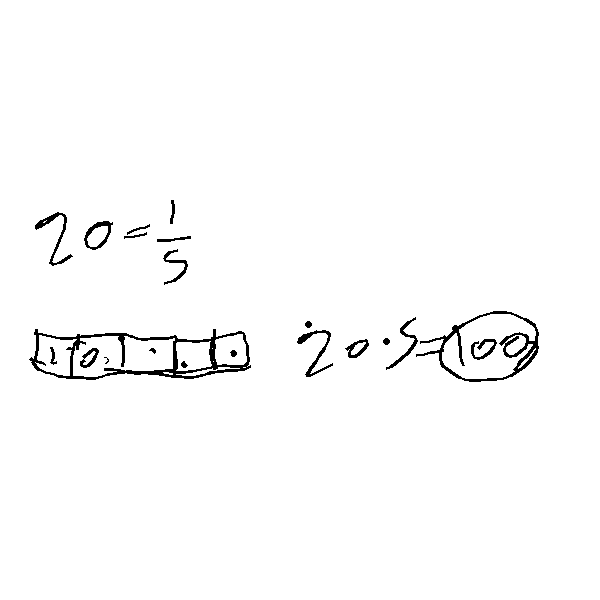 20 = 1/5
20 · 5 = 100